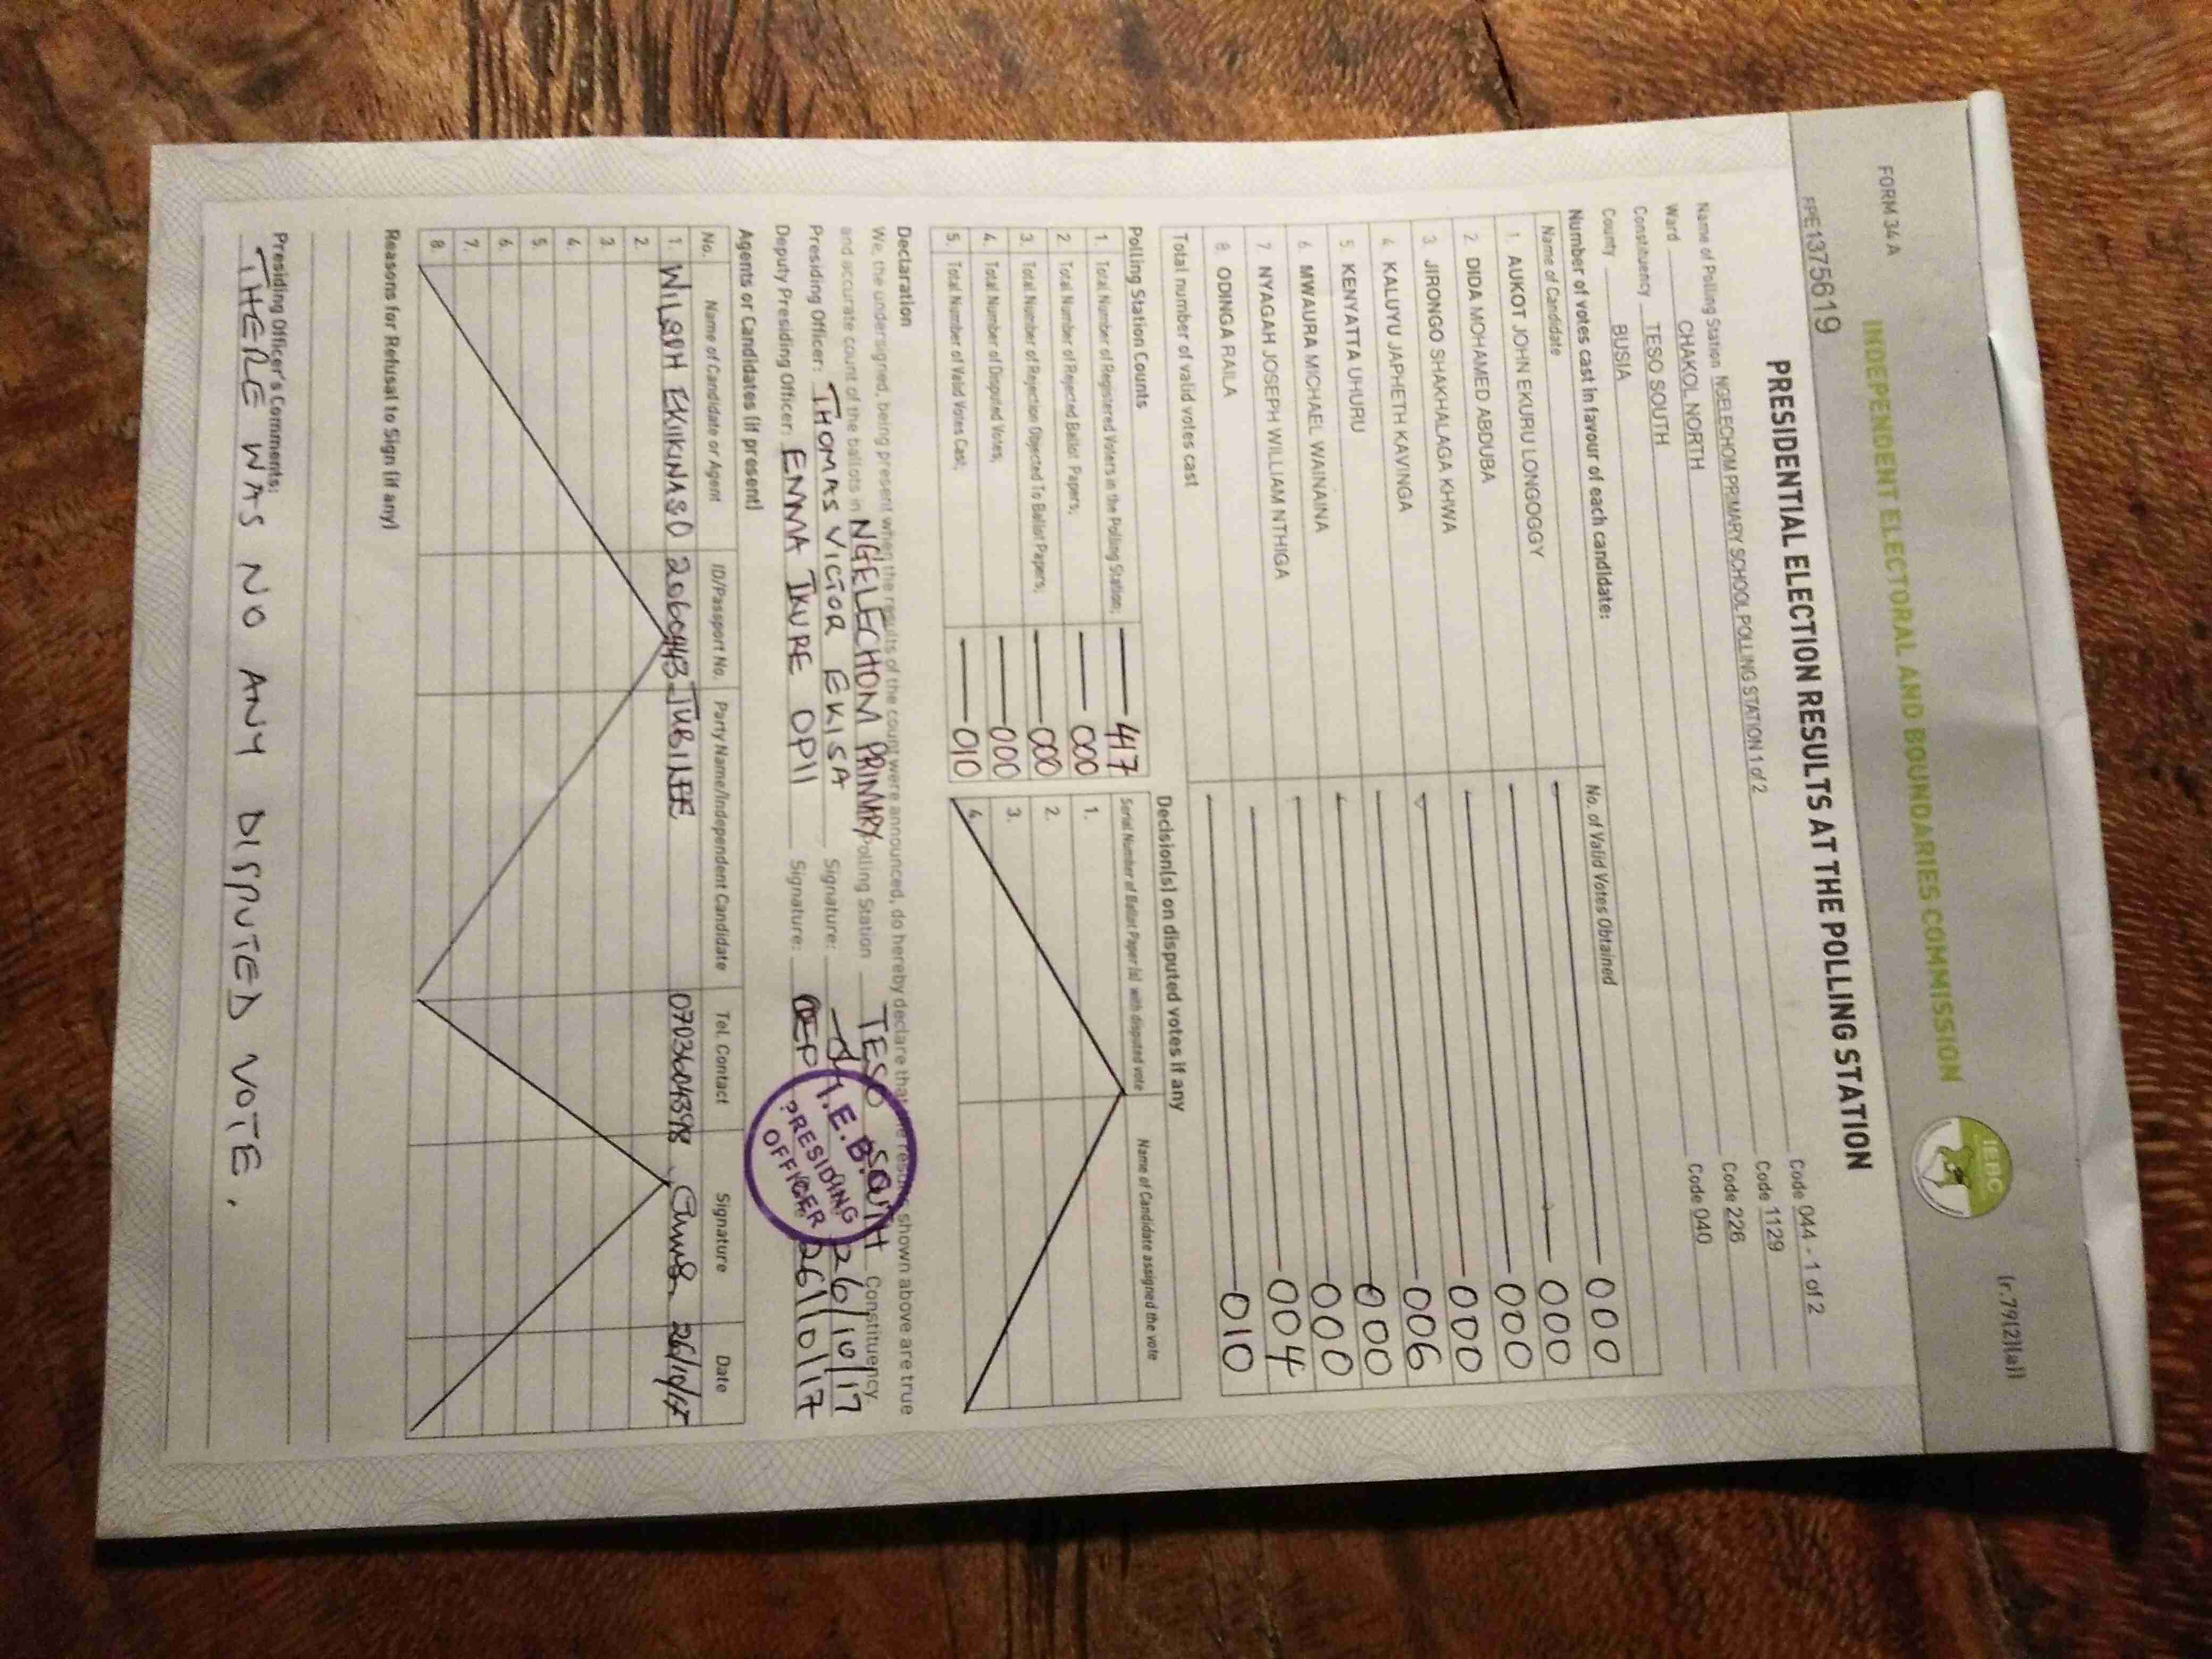 FORM 34 A
(r.79(2)(a))
INDEPENDENT ELECTORAL AND BOUNDARIES COMMISSION
IEBC
PPE1375619
PRESIDENTIAL ELECTION RESULTS AT THE POLLING STATION
Name of Polling Station NGELECHOM PRIMARY SCHOOL POLLING STATION 1 of 2 Code 044 - 1 of 2
Ward CHAKOL NORTH Code 1129
Constituency TESO SOUTH Code 226
County BUSIA Code 040
Number of votes cast in favour of each candidate:
Name of Candidate No. of Valid Votes Obtained
1. AUKOT JOHN EKURU LONGOGGY 000
2. DIDA MOHAMED ABDUBA 000
3. JIRONGO SHAKHALAGA KHWA 000
4. KALUYU JAPHETH KAVINGA 000
5. KENYATTA UHURU 006
6. MWAURA MICHAEL WAINAINA 000
7. NYAGAH JOSEPH WILLIAM NTHIGA 000
8. ODINGA RAILA 004
Total number of valid votes cast 010
Polling Station Counts
1. Total Number of Registered Voters in the Polling Station; 417
2. Total Number of Rejected Ballot Papers; 000
3. Total Number of Rejection Objected To Ballot Papers; 000
4. Total Number of Disputed Votes; 000
5. Total Number of Valid Votes Cast; 010
Decision(s) on disputed votes if any
Serial Number of Ballot Paper (s) with disputed vote Name of Candidate assigned the vote
1.
2.
3.
4.
Declaration
We, the undersigned, being present when the results of the count were announced, do hereby declare that the results shown above are true
and accurate count of the ballots in NGELECHOM PRIMARY Polling Station TESO SOUTH Constituency.
Presiding Officer: THOMAS VICTOR EKISA Signature: 26/10/17
Deputy Presiding Officer: EMMA IKURE OPII Signature: 26/10/17
I.E.B.C
PRESIDING
OFFICER
Agents or Candidates (if present)
No. Name of Candidate or Agent ID/Passport No. Party Name/Independent Candidate Tel. Contact Signature Date
1. JUBILEE 26/10/17
2.
3.
4.
5.
6.
7.
8.
Reasons for Refusal to Sign (if any)
Presiding Officer's Comments:
THERE WAS NO ANY DISPUTED VOTE.